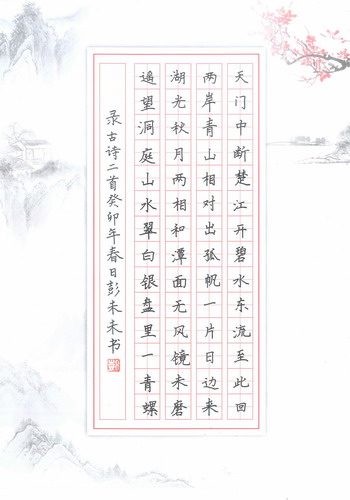 天门中断楚江开碧水东流至此回
两岸青山相对出孤帆一片日边来
湖光秋月两相和潭面无风镜未磨
遥望洞庭山水翠白银盘里一青螺
录古诗二首癸卯年春日彭未未书